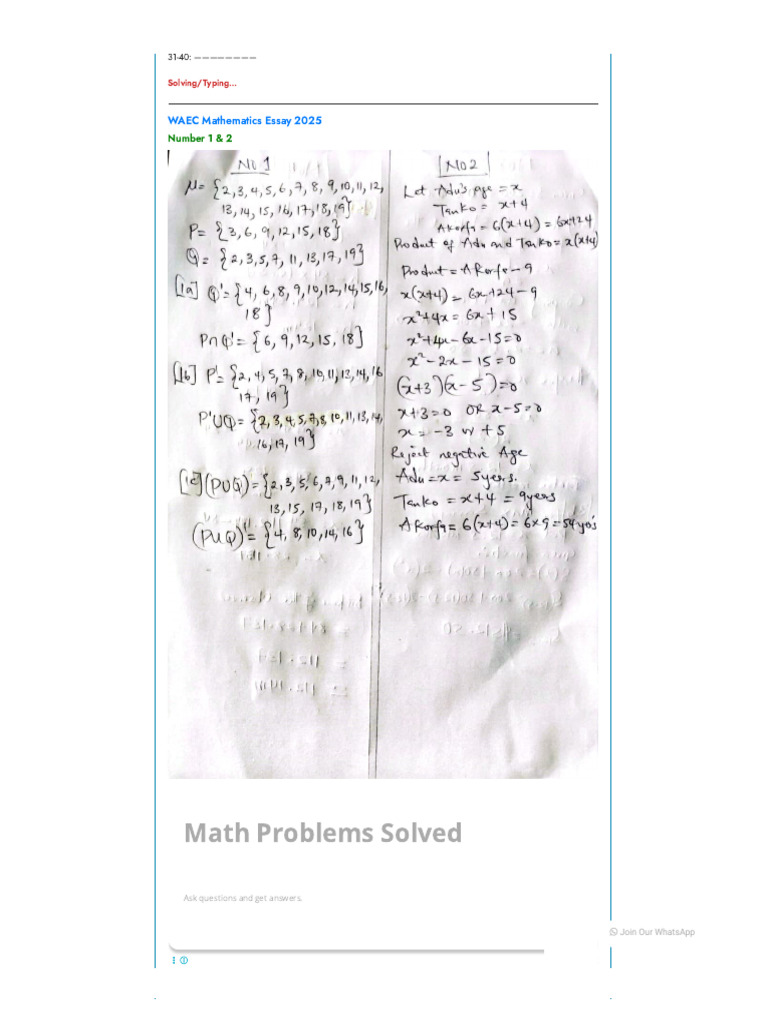 31-40: ————————
Solving/Typing...
WAEC Mathematics Essay 2025
Number 1 & 2
No 1
μ= {2,3,4,5,6,7,8,9,10,11,12,
13,14,15,16,17,18,19}
P= {3,6,9,12,15,18}
Q= {2,3,5,7,11,13,17,19}
[1a] Q'= {4,6,8,9,10,12,14,15,16,
18}
P∩Q'= {6,9,12,15,18}
[1b] P'= {2,4,5,7,8,10,11,13,14,16
17,19}
P'UQ= {2,3,4,5,7,8,10,11,13,14,
16,17,19}
[1c] (PUQ)= {2,3,5,6,7,9,11,12,
13,15,17,18,19}
(PUQ)'= {4,8,10,14,16}
No2
Let Adu's Age = x
Tanko = x+4
Akorfa = 6(x+4) = 6x+24
Product of Adu and Tanko = x(x+4)
Product = Akorfa - 9
x(x+4) = 6x+24-9
x²+4x = 6x+15
x²+4x-6x-15=0
x²-2x-15=0
(x+3)(x-5)=0
x+3=0 OR x-5=0
x = -3 or +5
Reject negative Age
Adu=x= 5yers.
Tanko = x+4 = 9yers
Akorfa = 6(x+4) = 6x9 = 54yo's
Math Problems Solved
Ask questions and get answers.
Join Our WhatsApp